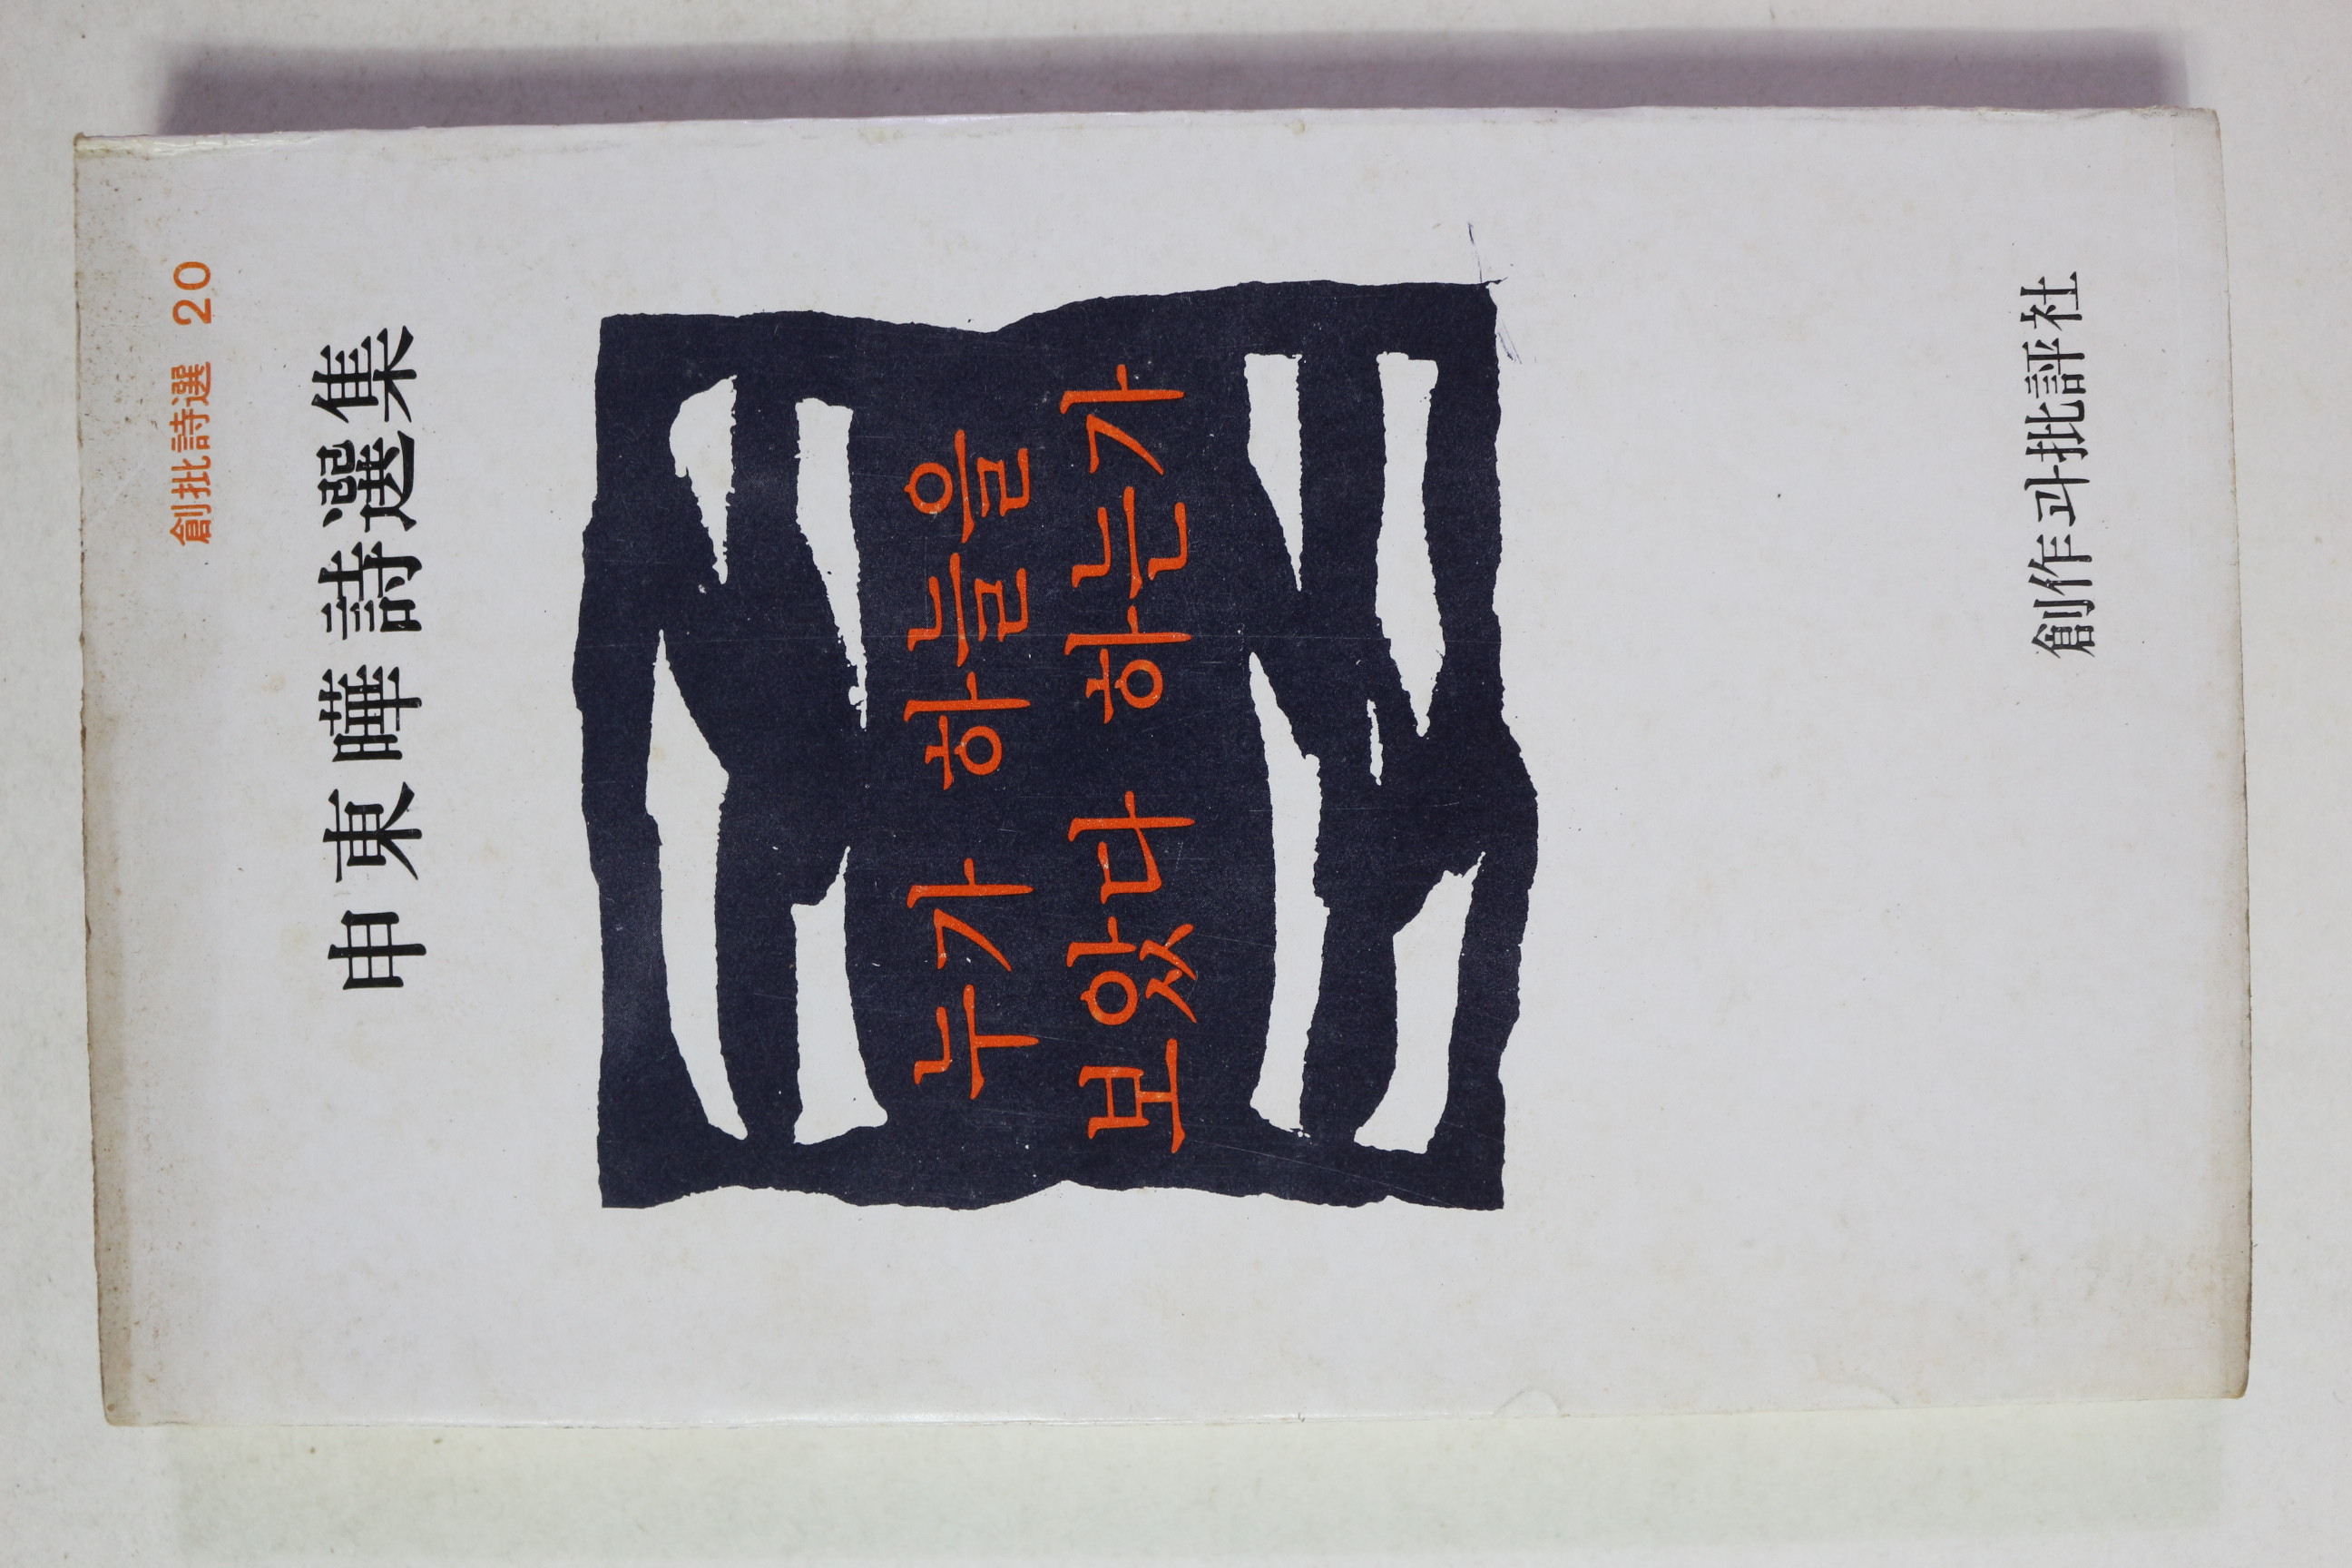 創批詩選 20
申東曄詩選集
누가 하늘을
보았다 하는가
創作과批評社